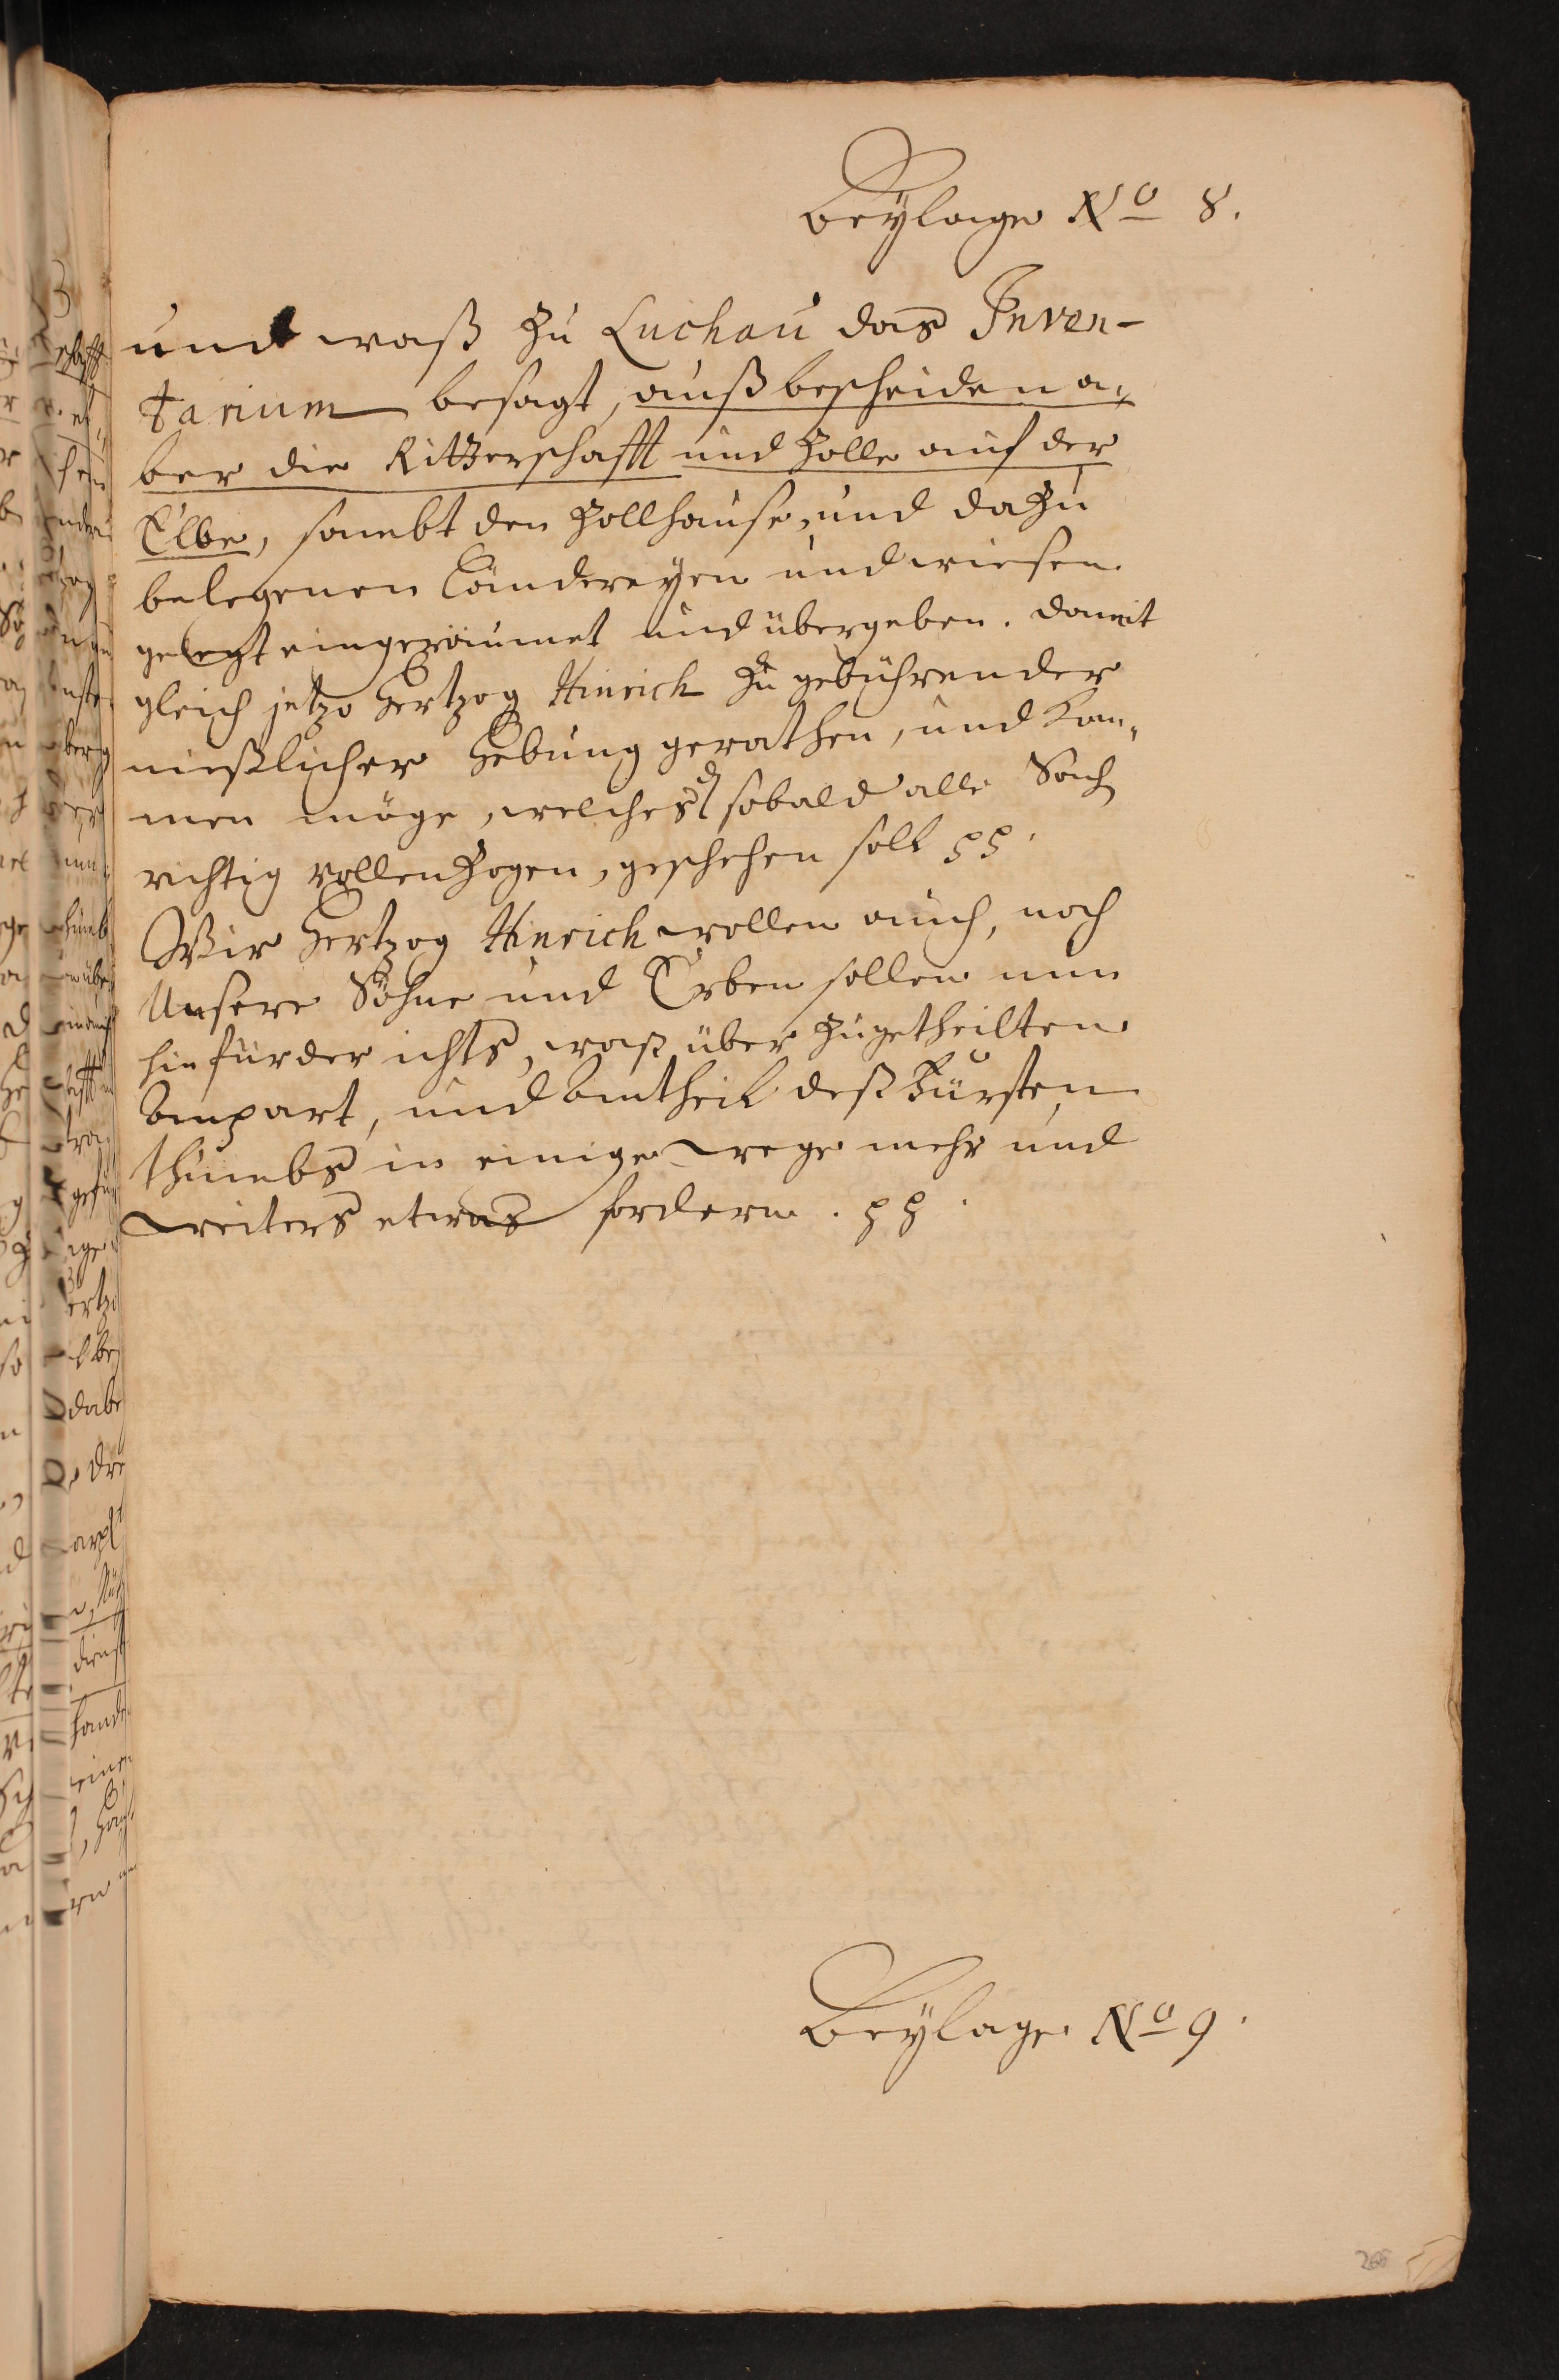 Beylage No 8.
und waß zu Luchau das Inven-
tarium besagt, außbescheiden a,
ber die Ritterschafft und Zolle auf der
Elbe, sambt den Zollhause, und dazu
belegenen Länderejen und wiesen
gelegt eingeräumet und übergeben. damit
gleich jetzo Hertzog Hinrich zu gebührender
nießlicher Hebung gerathen, und kom,
men möge, welches sobald alle Sach
richtig vollenzogen, geschehen soll pp.
Wir Hertzog Hinrich wollen auch, noch
Unsere Söhne und Erben sollen nun
hinfürder ichts, waß über zugetheilten
Anpart, und Antheil deß Fürsten
thumbs in einige wege mehr und
weiters etwas fordern. pp.
Beylage No 9.
266